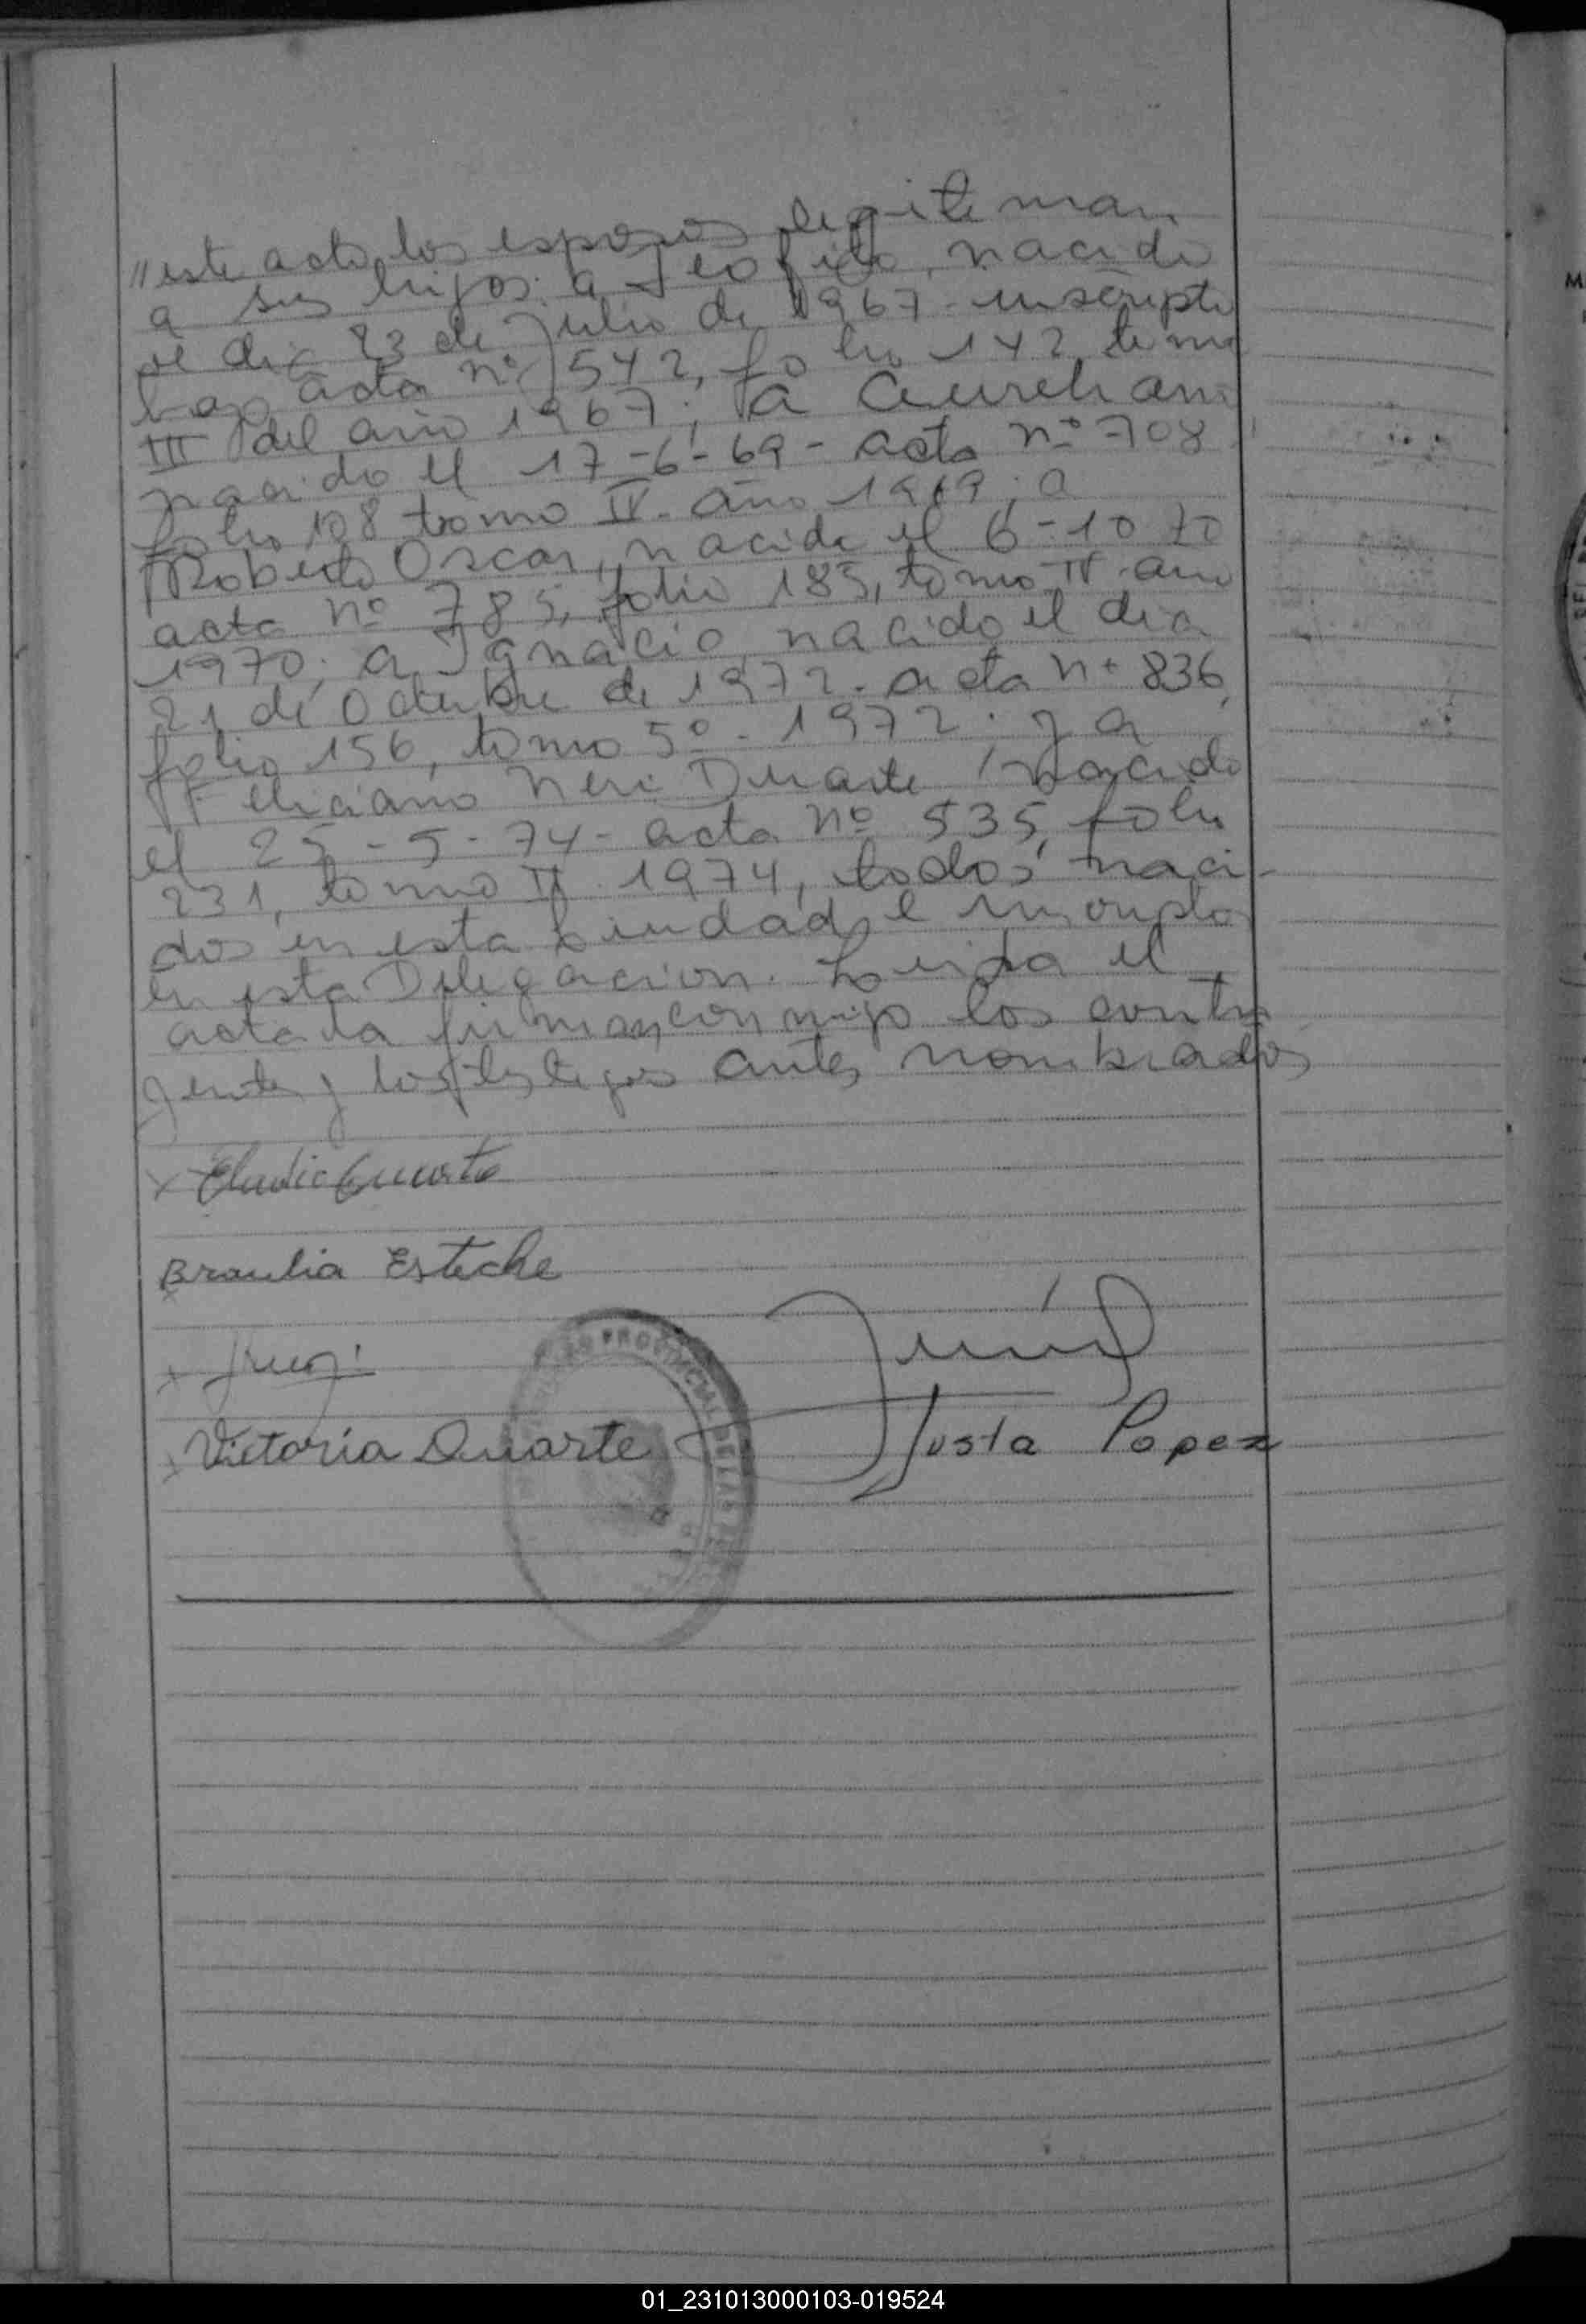 "este acto los esposos legitiman
a sus hijos: a Teofilo, nacido
el dia 23 de Julio de 1967 - inscripto
bajo acta nº 542, folio 142, tomo
III del año 1967; a Aureliano
nacido el 17-6-69 - acta nº 708
folio 108 tomo IV - año 1969; a
Roberto Oscar, nacido el 6-10 70
acta nº 785, folio 185, tomo IV - año
1970; a Ignacio, nacido el dia
21 de Octubre de 1972 - acta nº 836,
folio 156, tomo 5º - 1972; y a
Feliciano Neri Duarte, nacido
el 25-5-74 - acta nº 535, folio
231, tomo II 1974, todos naci-
dos en esta ciudad e inscriptos
en esta Delegacion. Leida el
acta la firman conmigo los contra
yentes y los testigos antes nombrados
x Eladio Duarte
Braulia Esteche
x
x Victoria Duarte
Justa Popez
PROVINCIAL DE LAS
M
01_231013000103-019524